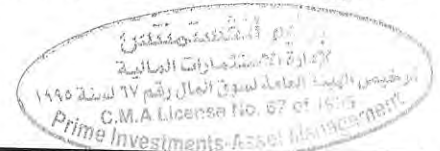 لإدارة الاستثمارات المالية
ترخيص الهيئة العامة لسوق المال رقم ٦٧ لسنة ١٩٩٥
C.M.A License No. 67 of
Prime Investments-Asset Management